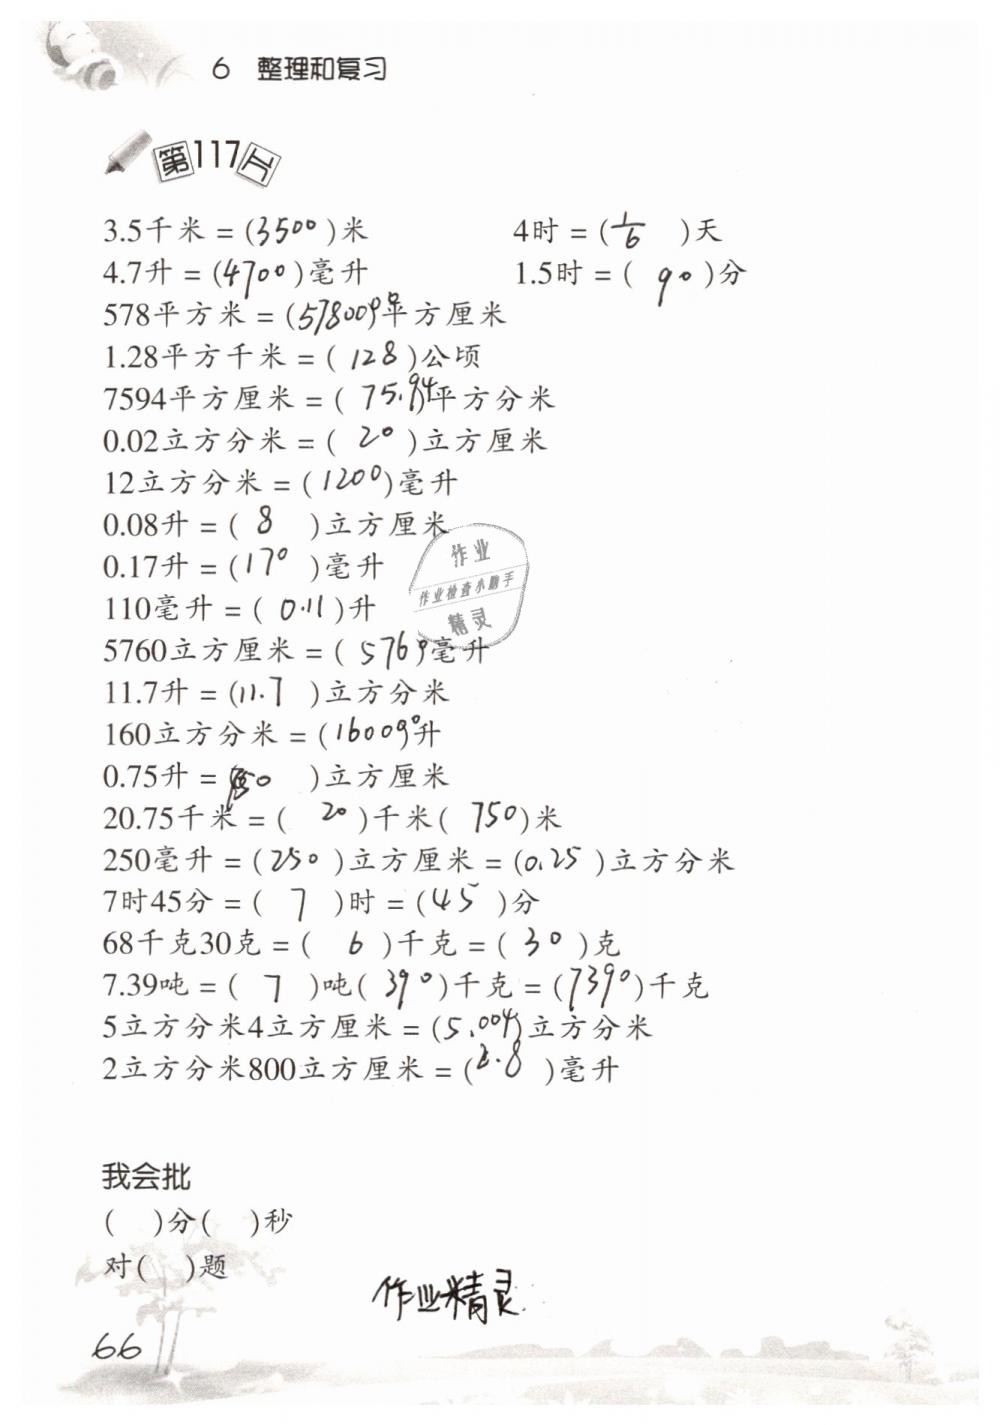 6 整理和复习
第117天
3.5千米 = (3500)米 4时 = (1/6)天
4.7升 = (4700)毫升 1.5时 = (90)分
578平方米 = (5780000)平方厘米
1.28平方千米 = (128)公顷
7594平方厘米 = (75.94)平方分米
0.02立方分米 = (20)立方厘米
12立方分米 = (1200)毫升
0.08升 = (8)立方厘米
0.17升 = (170)毫升
110毫升 = (0.11)升
5760立方厘米 = (5760)毫升
11.7升 = (11.7)立方分米
160立方分米 = (16000)升
0.75升 = 750)立方厘米
20.75千米 = (20)千米(750)米
250毫升 = (250)立方厘米 = (0.25)立方分米
7时45分 = (7)时 = (45)分
68千克30克 = (6)千克 = (30)克
7.39吨 = (7)吨(390)千克 = (7390)千克
5立方分米4立方厘米 = (5.004)立方分米
2立方分米800立方厘米 = (2.8)毫升
作业
作业检查小助手
精灵
我会批
( )分( )秒
对( )题
作业精灵
66